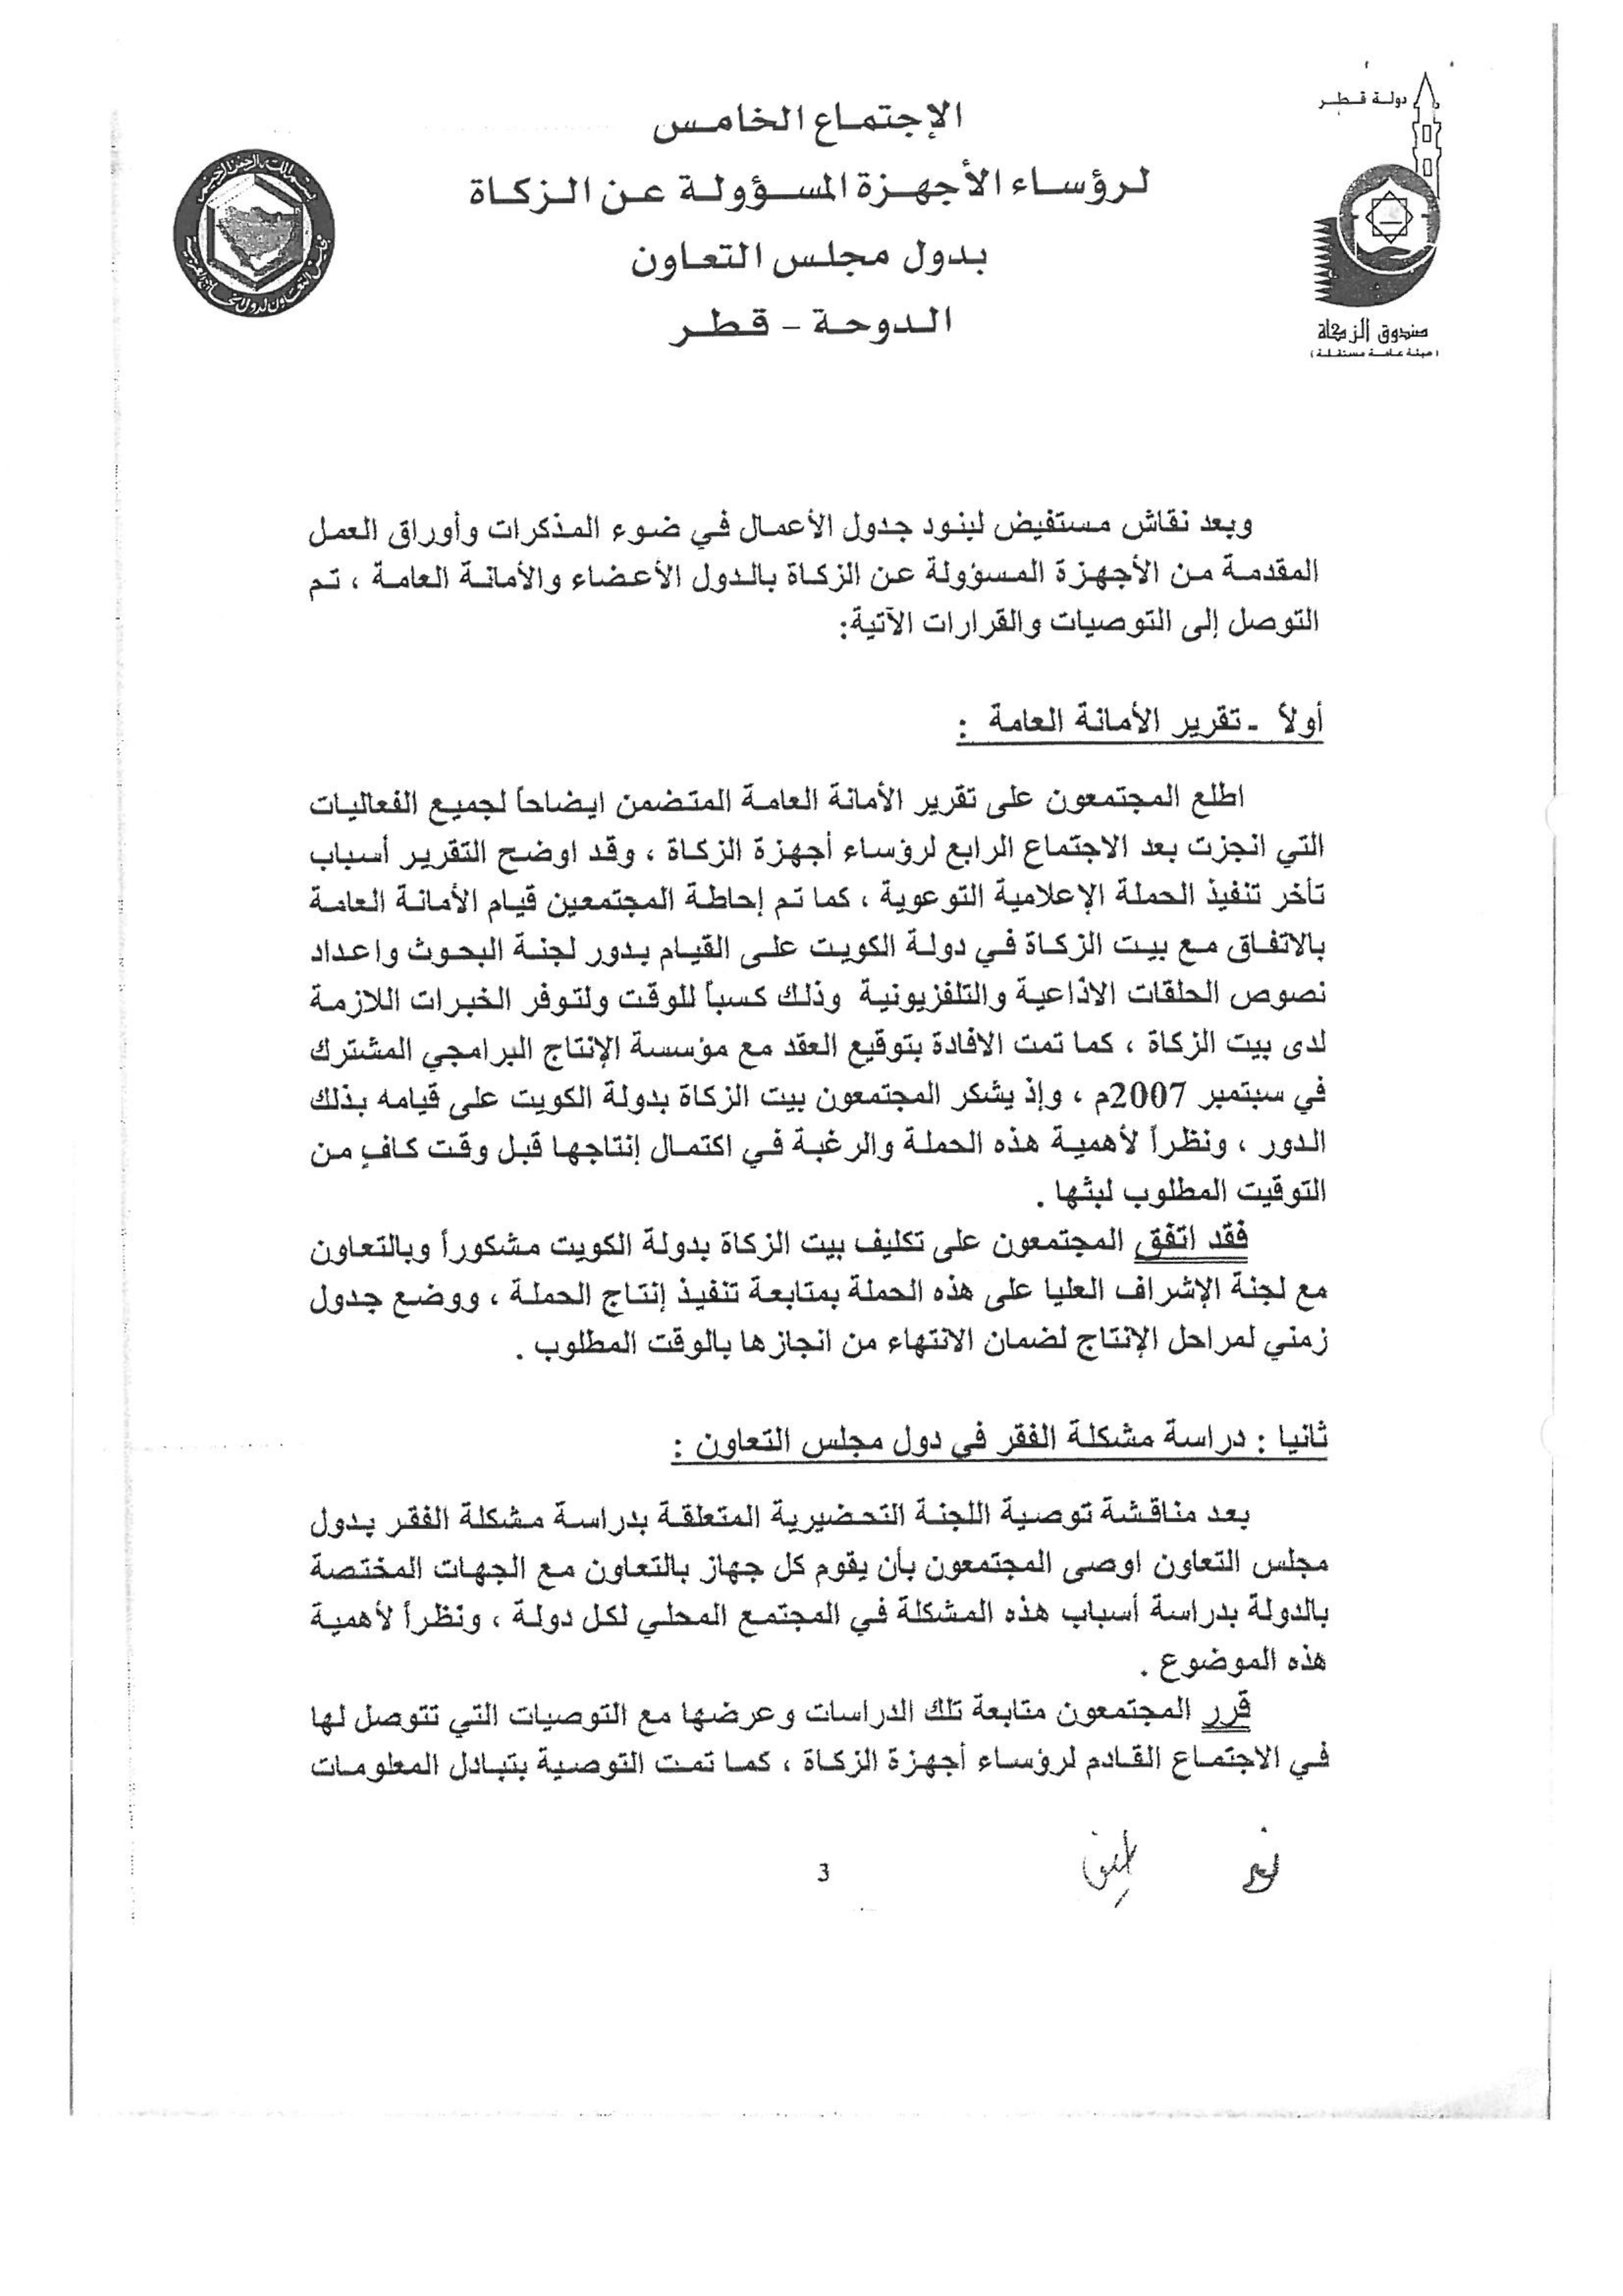 دولة قطر
صندوق الزكاة
(هيئة عامة مستقلة)
الإجتماع الخامس
لرؤساء الأجهزة المسؤولة عن الزكاة
بدول مجلس التعاون
الدوحة - قطر
وبعد نقاش مستفيض لبنود جدول الأعمال في ضوء المذكرات وأوراق العمل
المقدمة من الأجهزة المسؤولة عن الزكاة بالدول الأعضاء والأمانة العامة ، تم
التوصل إلى التوصيات والقرارات الآتية:
أولاً - تقرير الأمانة العامة :
اطلع المجتمعون على تقرير الأمانة العامة المتضمن ايضاحاً لجميع الفعاليات
التي انجزت بعد الاجتماع الرابع لرؤساء أجهزة الزكاة ، وقد اوضح التقرير أسباب
تأخر تنفيذ الحملة الإعلامية التوعوية ، كما تم إحاطة المجتمعين قيام الأمانة العامة
بالاتفاق مع بيت الزكاة في دولة الكويت على القيام بدور لجنة البحوث واعداد
نصوص الحلقات الاذاعية والتلفزيونية وذلك كسباً للوقت ولتوفر الخبرات اللازمة
لدى بيت الزكاة ، كما تمت الافادة بتوقيع العقد مع مؤسسة الإنتاج البرامجي المشترك
في سبتمبر 2007م ، وإذ يشكر المجتمعون بيت الزكاة بدولة الكويت على قيامه بذلك
الدور ، ونظراً لأهمية هذه الحملة والرغبة في اكتمال إنتاجها قبل وقت كافٍ من
التوقيت المطلوب لبثها .
فقد اتفق المجتمعون على تكليف بيت الزكاة بدولة الكويت مشكوراً وبالتعاون
مع لجنة الإشراف العليا على هذه الحملة بمتابعة تنفيذ إنتاج الحملة ، ووضع جدول
زمني لمراحل الإنتاج لضمان الانتهاء من انجازها بالوقت المطلوب .
ثانيا : دراسة مشكلة الفقر في دول مجلس التعاون :
بعد مناقشة توصية اللجنة التحضيرية المتعلقة بدراسة مشكلة الفقر بدول
مجلس التعاون اوصى المجتمعون بأن يقوم كل جهاز بالتعاون مع الجهات المختصة
بالدولة بدراسة أسباب هذه المشكلة في المجتمع المحلي لكل دولة ، ونظراً لأهمية
هذه الموضوع .
قرر المجتمعون متابعة تلك الدراسات وعرضها مع التوصيات التي تتوصل لها
في الاجتماع القادم لرؤساء أجهزة الزكاة ، كما تمت التوصية بتبادل المعلومات
3